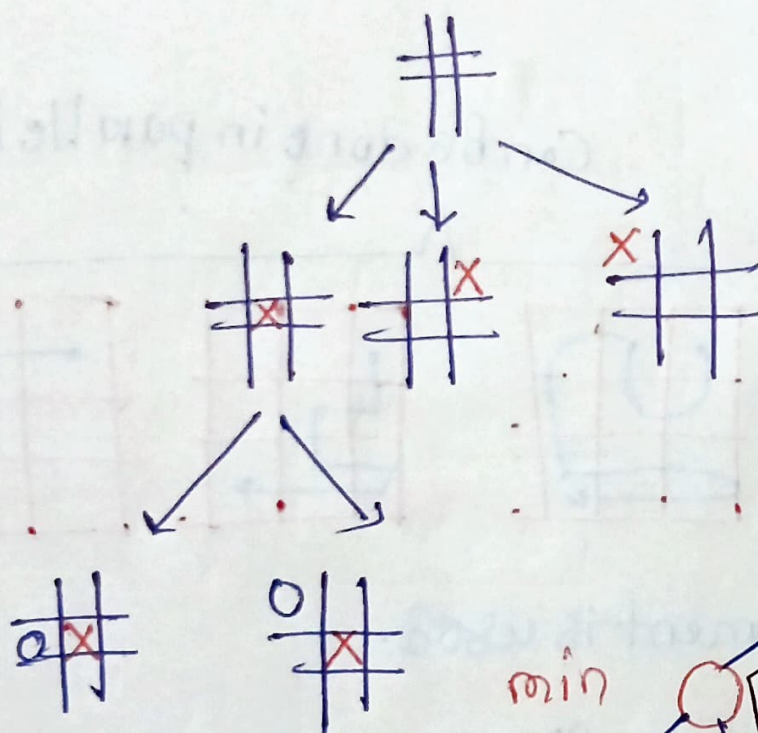 X X X
O X O X
min